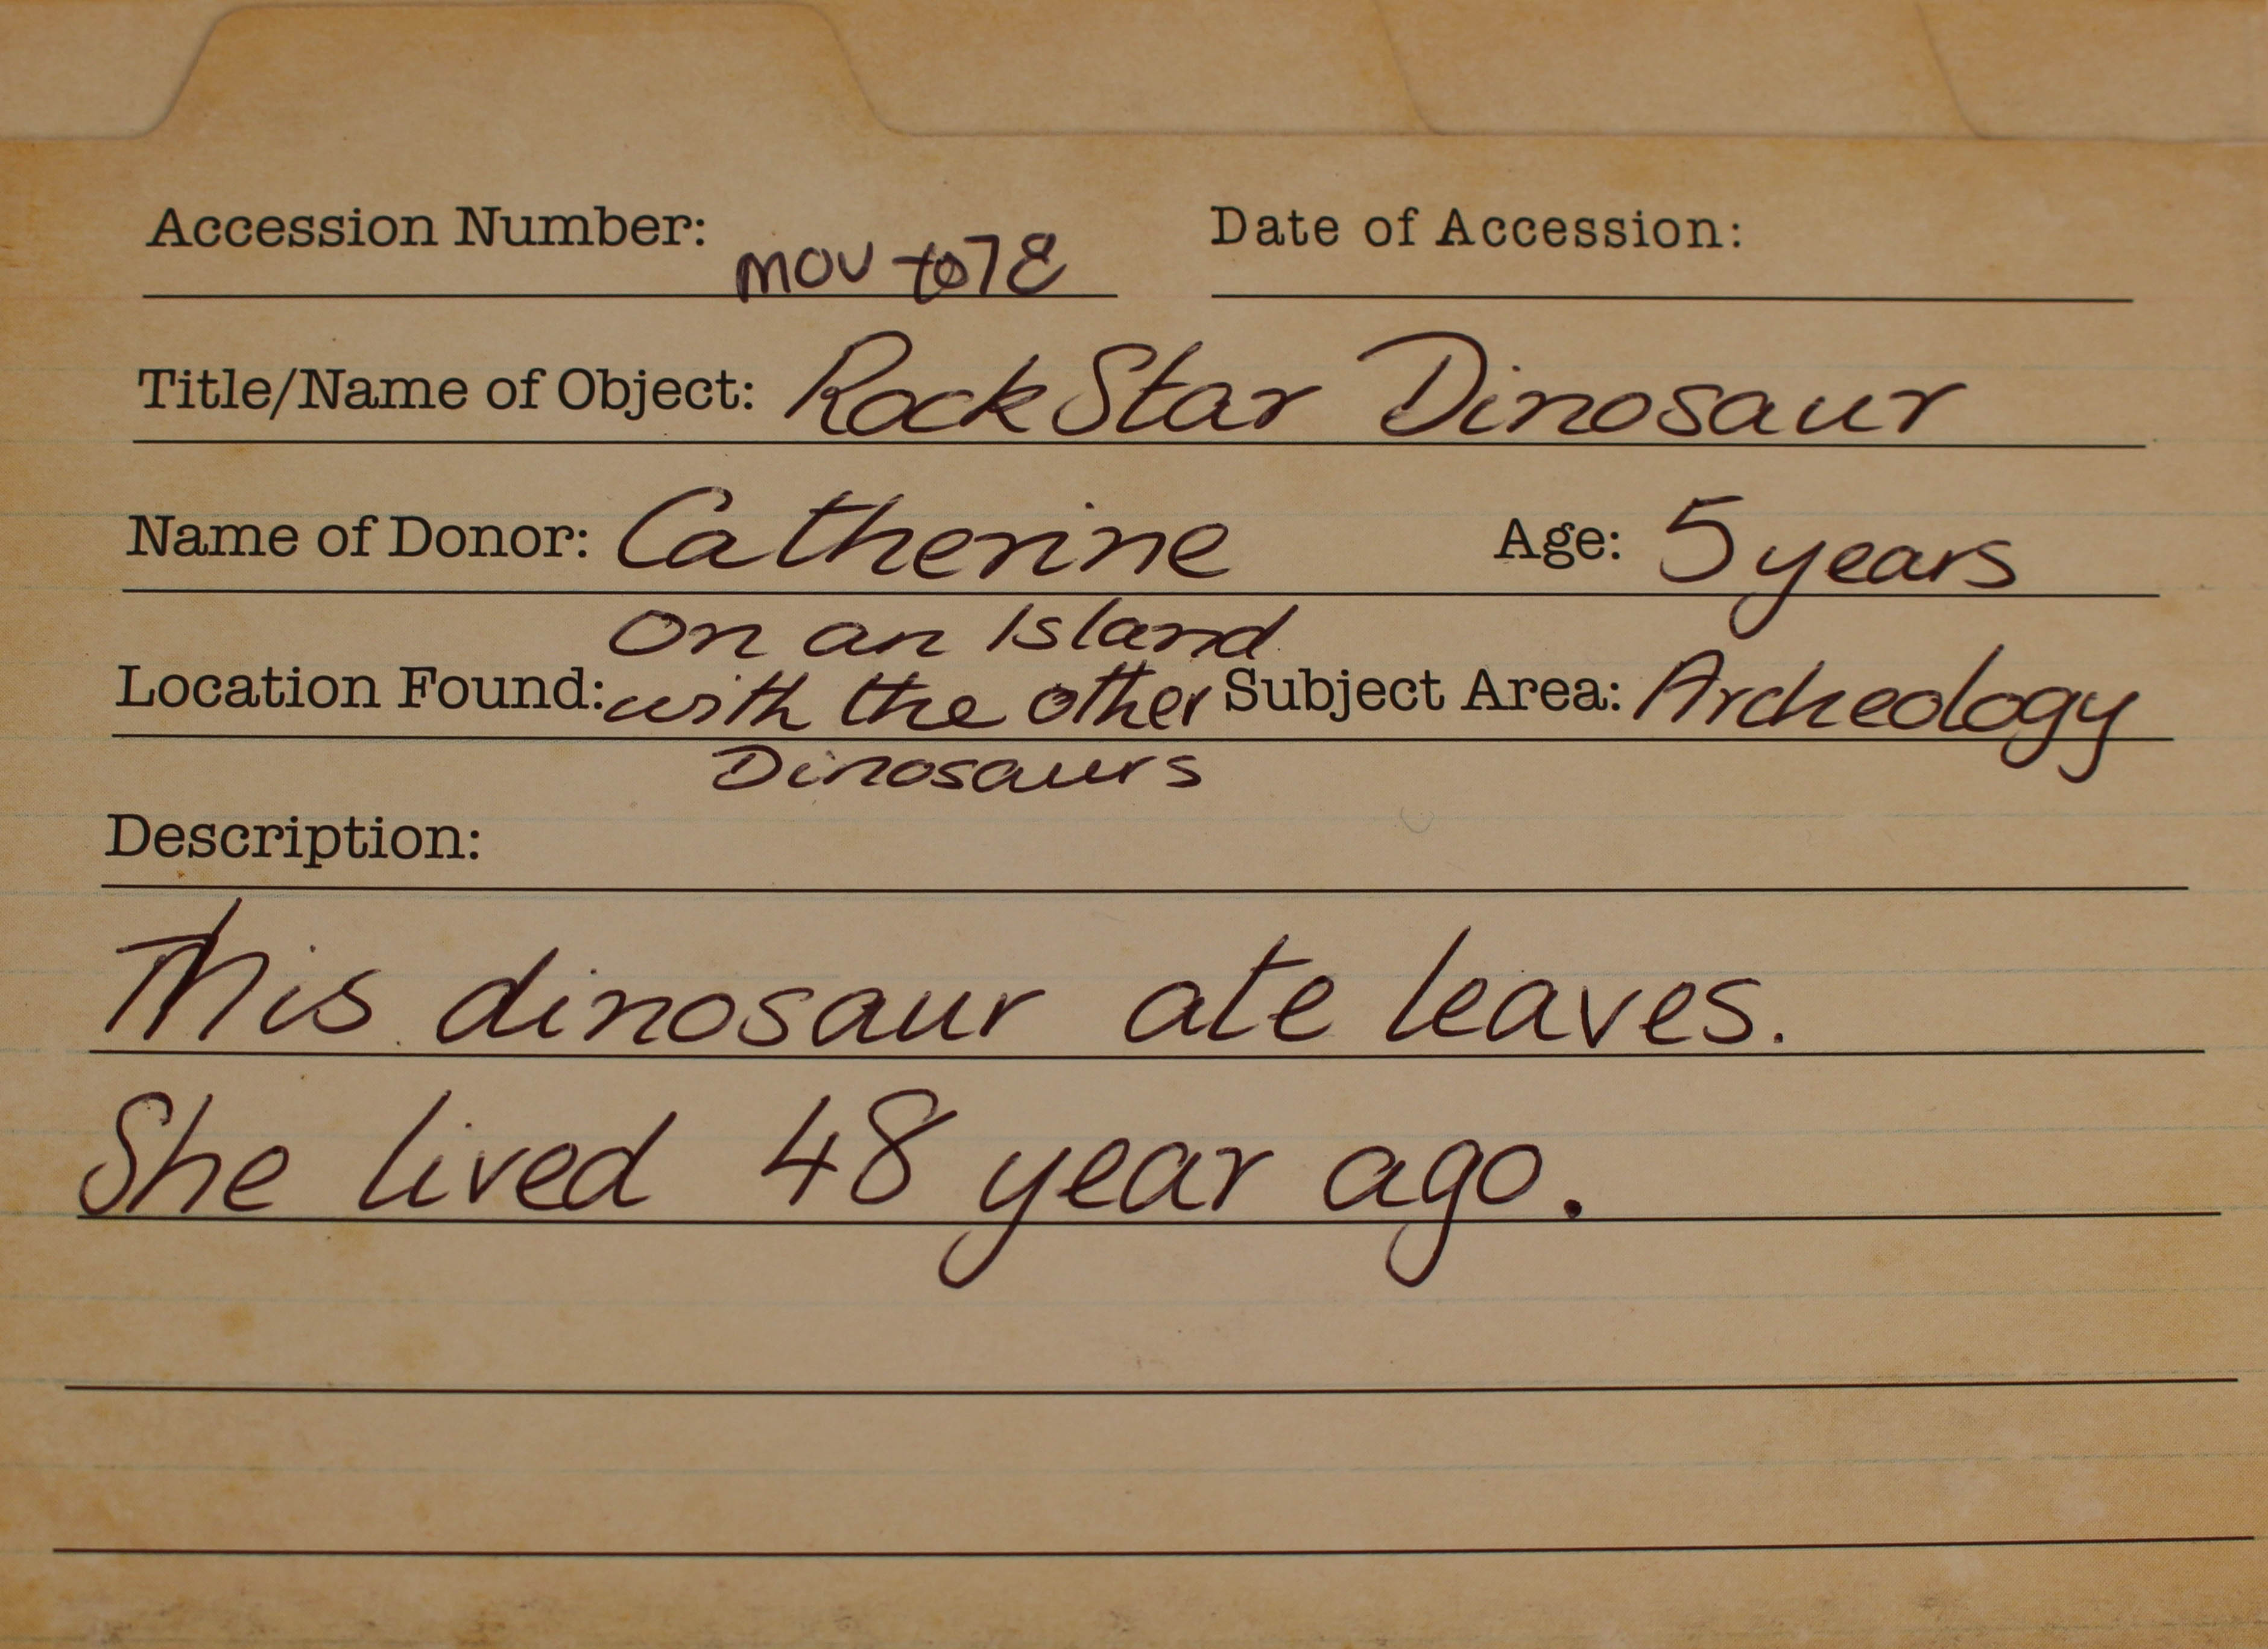 Accession Number: mov to78 Date of Accession:
Title/Name of Object: RockStar Dinosaur
Name of Donor: Catherine Age: 5 years
On an Island
Location Found: with the other Subject Area: Archeology
Dinosaurs
Description:
This dinosaur ate leaves.
She lived 48 year ago.